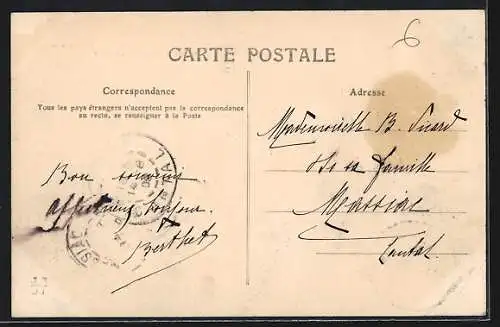 6
CARTE POSTALE
Correspondance
Tous les pays étrangers n'acceptent pas la correspondance
au recto, se renseigner à la Poste
Adresse
Bon souvenir
affectueux bonjour.
Berthet
Mademoiselle B. Picard
et sa famille
Massiac
Cantal